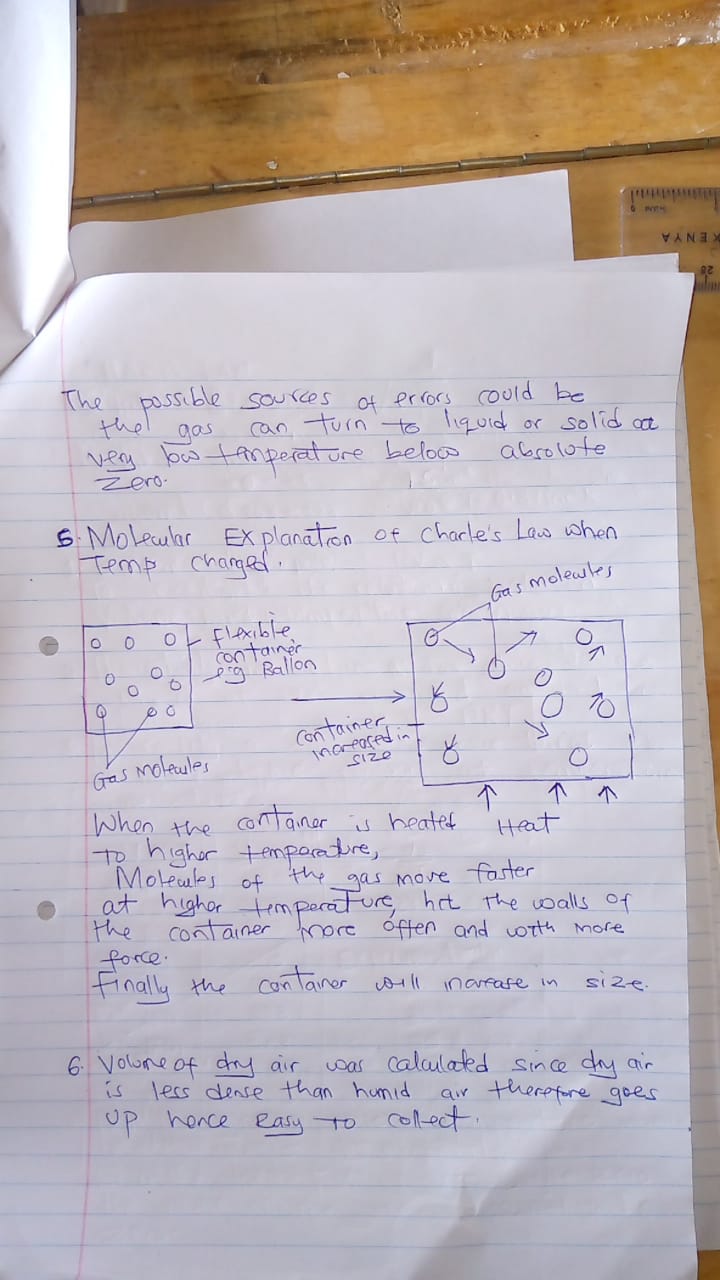 KENYA
The possible sources of errors could be
the gas can turn to liquid or solid at
very low temperature below absolute
Zero.
5. Molecular Explanation of Charle's Law when
Temp changed.
Gas molecules
flexible
container
e.g Ballon
Container
increased in
size
Gas molecules
When the container is heated
Heat
to higher temperature,
Molecules of the gas move faster
at higher temperature, hit the walls of
the container more often and with more
force.
Finally the container will increase in size.
6. Volume of dry air was calculated since dry air
is less dense than humid air therefore goes
up hence easy to collect.